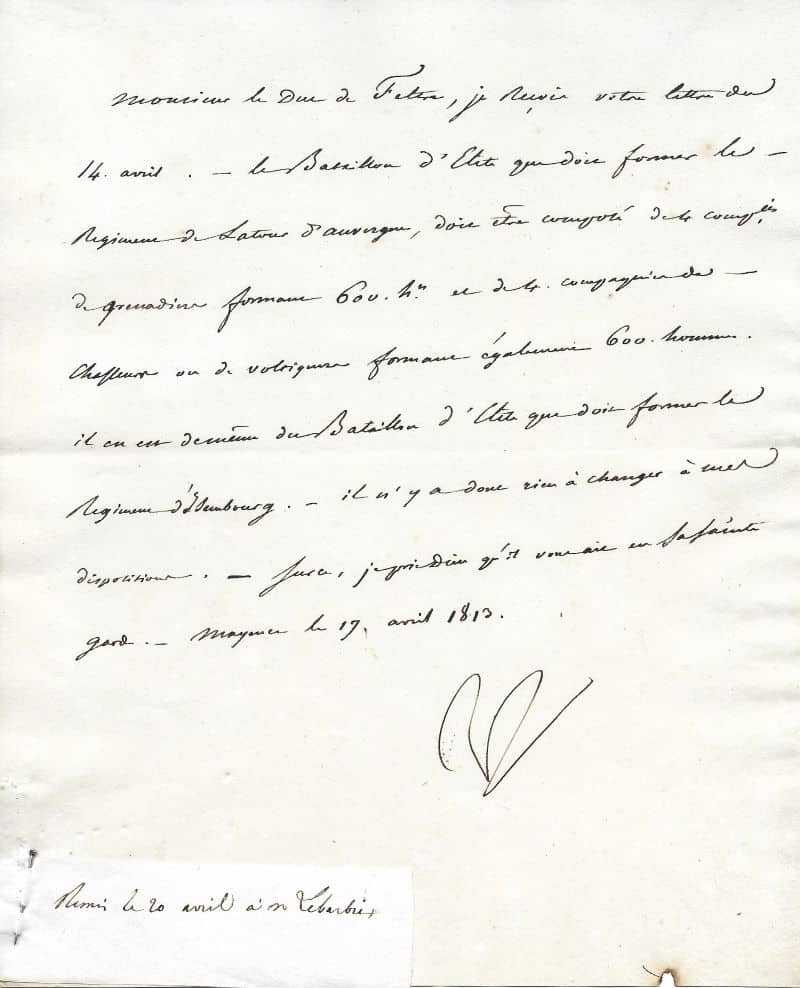 Monsieur le Duc de Feltre, je Reçois votre lettre du
14. avril . — le Bataillon d'Elite que doit former le —
Regiment de Latour d'auvergne, doit être composé de 4 comp.ies
de grenadiers formant 600. h.es et de 4. compagnies de —
Chasseurs ou de voltigeurs formant également 600. hommes.
il en est de même du Bataillon d'Elite que doit former le
Regiment d'Isembourg. — il n'y a donc rien à changer à mes
dispositions . — Sur ce, je prie Dieu qu'il vous ait en Sa Sainte
garde. — Mayence le 17. avril 1813.
Remis le 20 avril à m Lebarbier